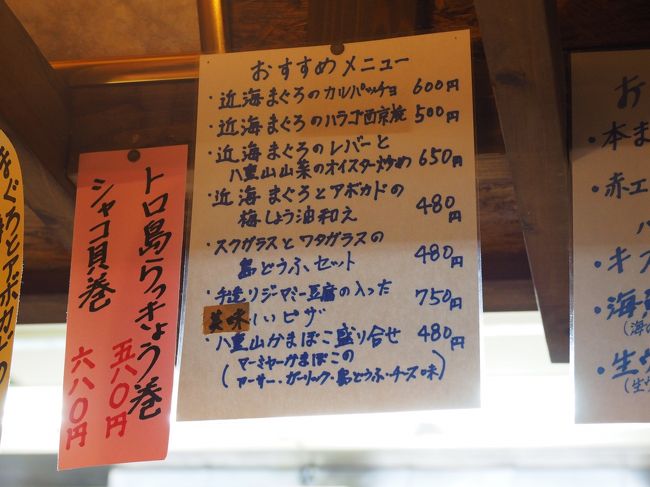 おすすめメニュー
・近海まぐろのカルパッチョ 600円
・近海まぐろのハラゴ西京焼 500円
・近海まぐろのレバーと
八重山山菜のオイスター炒め 650円
・近海まぐろとアボカドの
梅しょう油和え 480円
・スクガラスとワタガラスの
島どうふ、セット 480円
・手造りジーマミー豆腐の入った
美味しいピザ 750円
・八重山かまぼこ盛り合せ 480円
(マーミヤーかまぼこの
アーサー・ガーリック・島どうふ・チーズ味)
トロ島らっきょう巻
五八〇円
シャコ貝巻
六八〇円
まぐろとアボカドの
お
・本ま
・赤エ
・キ
・海
(海
・生
(生